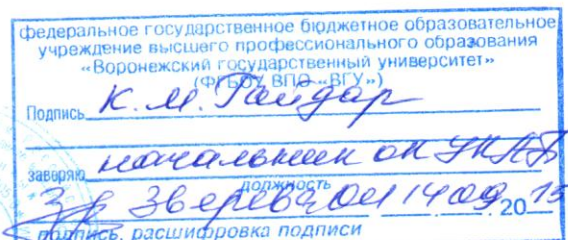 федеральное государственное бюджетное образовательное
учреждение высшего профессионального образования
«Воронежский государственный университет»
(ФГБОУ ВПО «ВГУ»)
Подпись К. М. Гайдар
заверяю начальник ОК
должность
Зверева 14 09 2015
подпись, расшифровка подписи